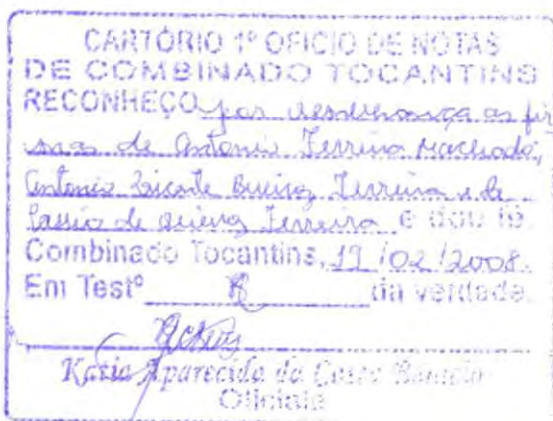 CARTÓRIO 1º OFICIO DE NOTAS
DE COMBINADO TOCANTINS
RECONHEÇO por semelhança as fir
mas de Antonio Ferreira Machado,
Antonio Vicente Queiroz Ferreira e de
Cassio de Queiroz Ferreira e dou fé.
Combinado Tocantins, 19/02/2008.
Em Testº R da verdade.
Katia Aparecida da Costa
Oficiala